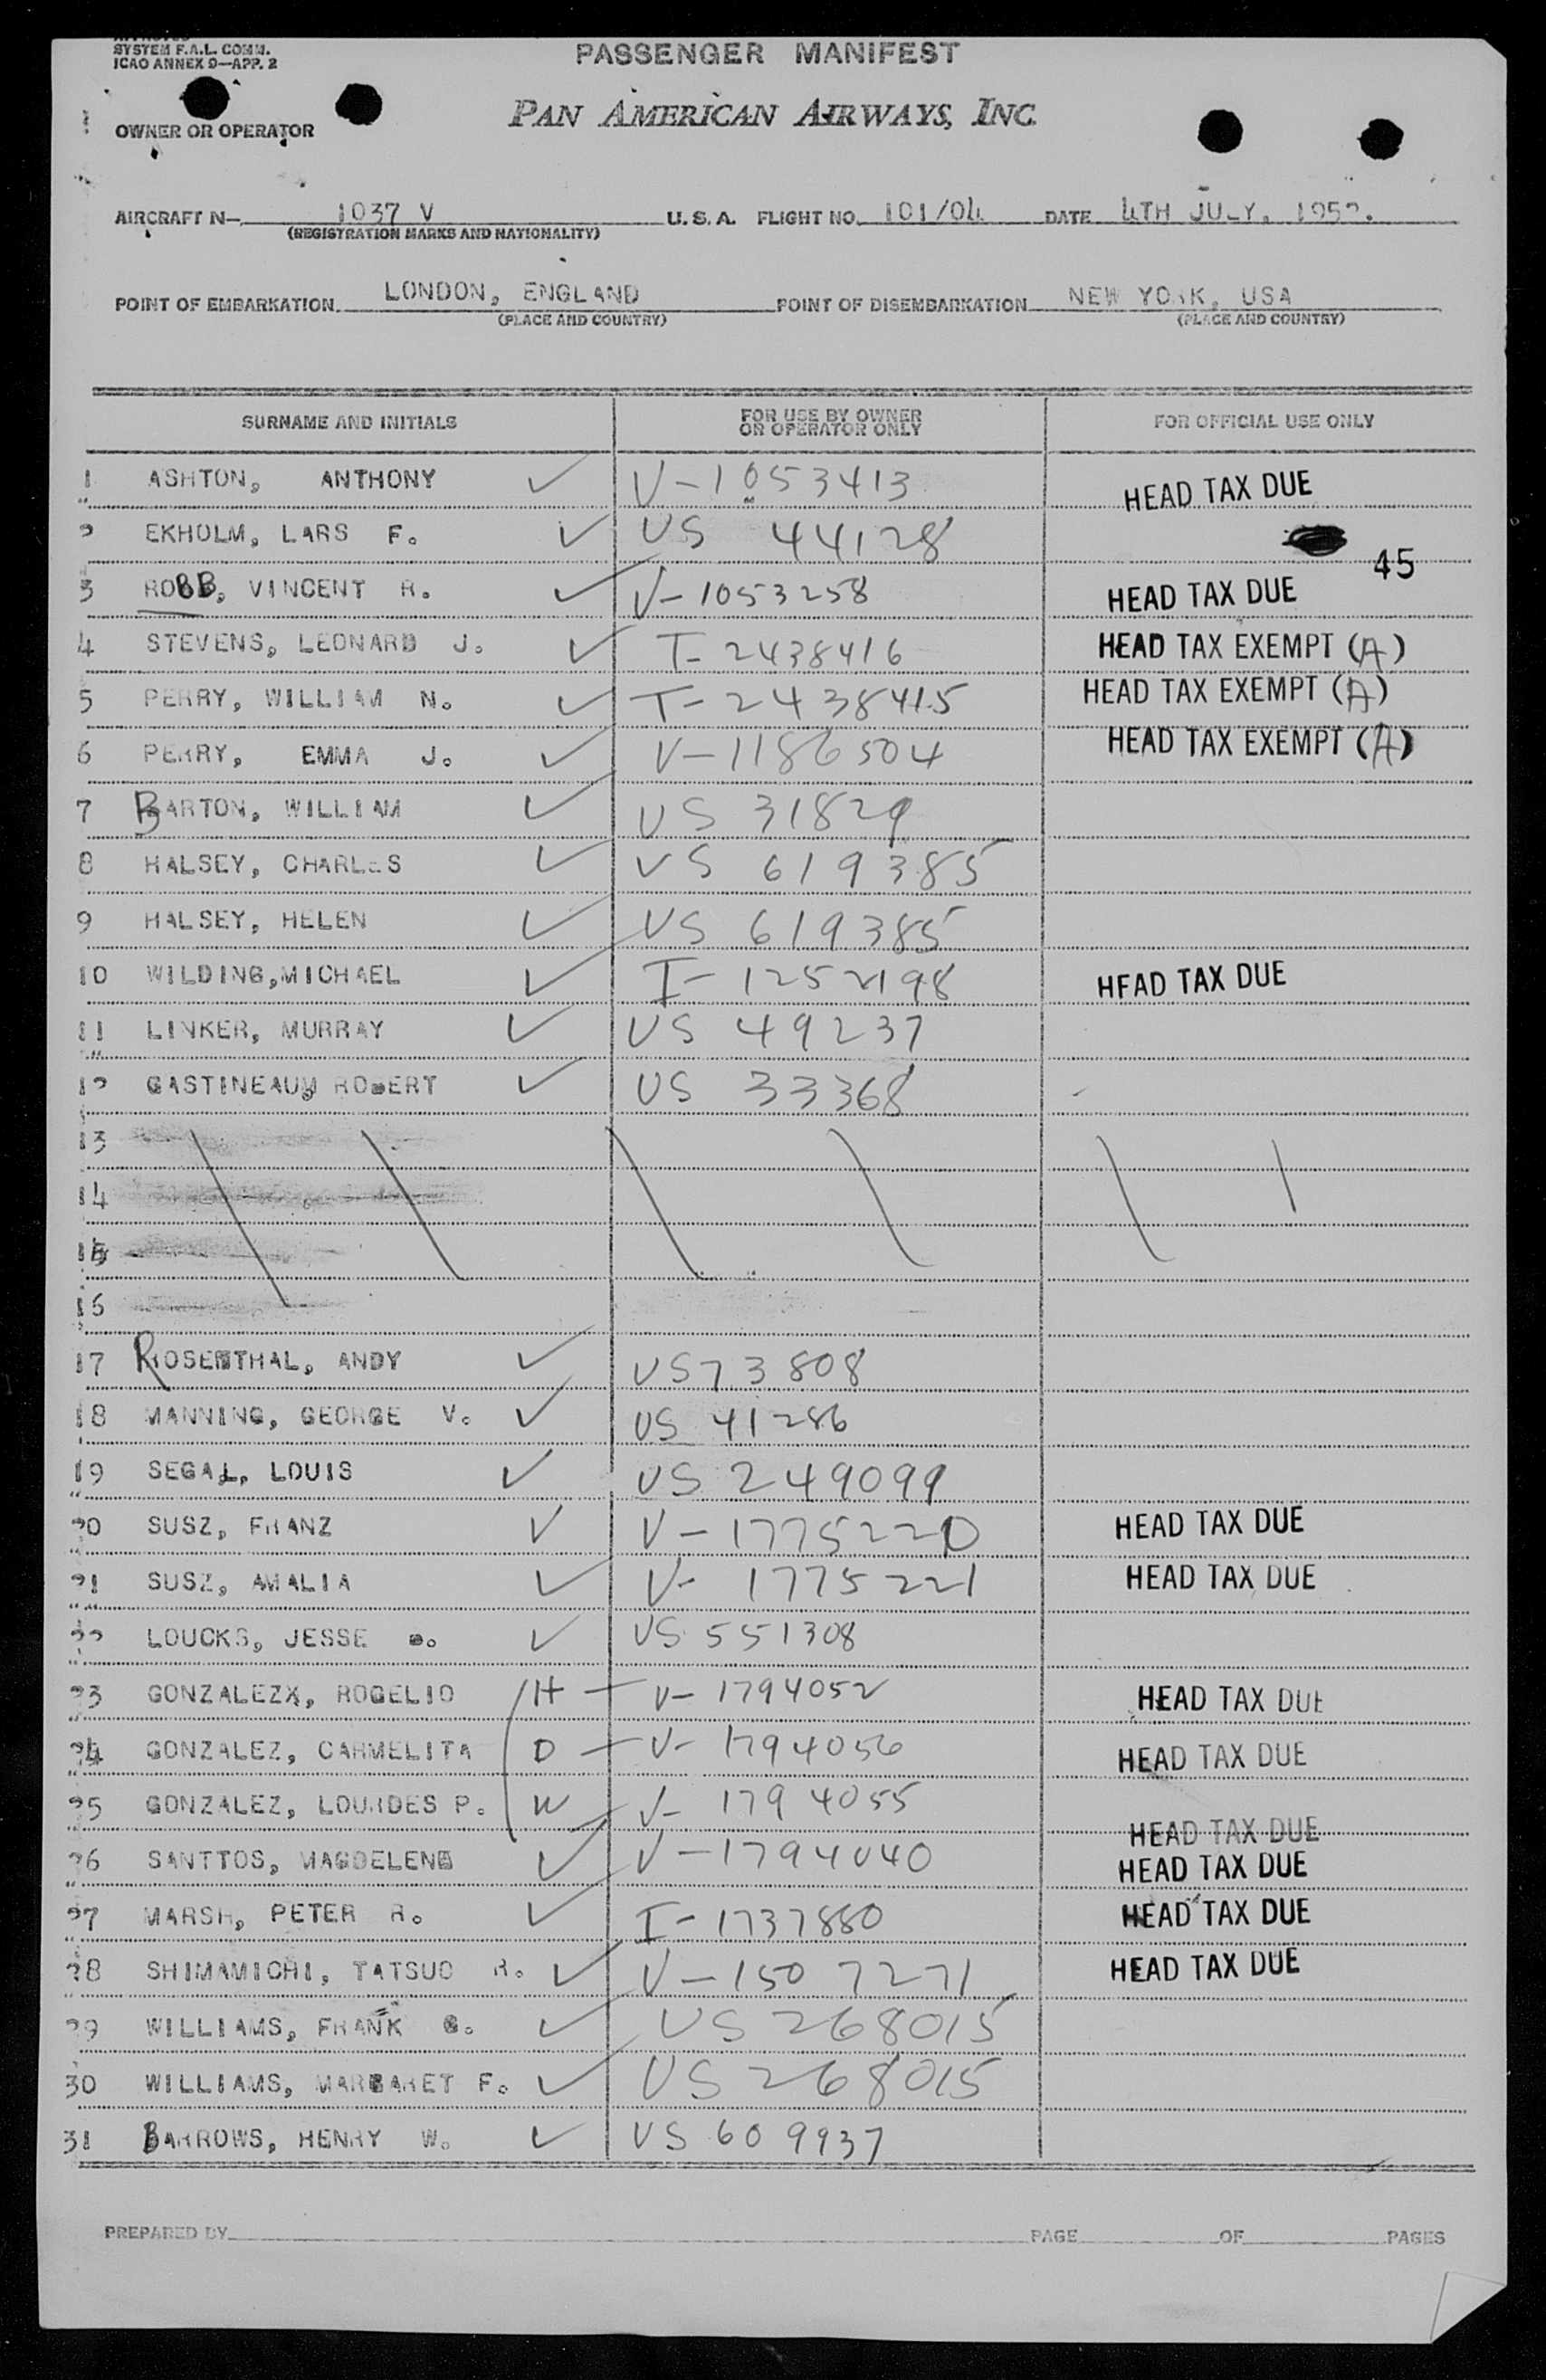 SYSTEM F.A.L. COMM.
ICAO ANNEX 9—APP. 2
PASSENGER MANIFEST
PAN AMERICAN AIRWAYS, INC.
OWNER OR OPERATOR
AIRCRAFT N— 1037 V U. S. A. FLIGHT NO. 101/04 DATE 4TH JULY, 1952.
(REGISTRATION MARKS AND NATIONALITY)
POINT OF EMBARKATION LONDON, ENGLAND POINT OF DISEMBARKATION NEW YORK, USA
(PLACE AND COUNTRY) (PLACE AND COUNTRY)
SURNAME AND INITIALS FOR USE BY OWNER OR OPERATOR ONLY FOR OFFICIAL USE ONLY
1 ASHTON, ANTHONY ✓ V-1053413 HEAD TAX DUE
2 EKHOLM, LARS F. ✓ US 44128
45
3 ROBB, VINCENT R. ✓ V-1053258 HEAD TAX DUE
4 STEVENS, LEONARD J. ✓ T-2438416 HEAD TAX EXEMPT (A)
5 PERRY, WILLIAM N. ✓ T-2438415 HEAD TAX EXEMPT (A)
6 PERRY, EMMA J. ✓ V-1186504 HEAD TAX EXEMPT (A)
7 BARTON, WILLIAM ✓ US 31829
8 HALSEY, CHARLES ✓ US 619385
9 HALSEY, HELEN ✓ US 619385
10 WILDING, MICHAEL ✓ I-1252198 HEAD TAX DUE
11 LINKER, MURRAY ✓ US 49237
12 GASTINEAU, ROBERT ✓ US 33368
13
14
15
16
17 ROSENTHAL, ANDY ✓ US 73808
18 MANNING, GEORGE V. ✓ US 41286
19 SEGAL, LOUIS ✓ US 249099
20 SUSZ, FRANZ ✓ V-1775220 HEAD TAX DUE
21 SUSZ, AMALIA ✓ V-1775221 HEAD TAX DUE
22 LOUCKS, JESSE ✓ US 551308
23 GONZALEZX, ROGELIO H — V-1794052 HEAD TAX DUE
24 GONZALEZ, CARMELITA D — V-1794056 HEAD TAX DUE
25 GONZALEZ, LOURDES P. W — V-1794055 HEAD TAX DUE
26 SANTTOS, MAGDELENE ✓ V-1794040 HEAD TAX DUE
27 MARSH, PETER R. ✓ I-1737880 HEAD TAX DUE
28 SHIMAMICHI, TATSUO R. ✓ V-1507271 HEAD TAX DUE
29 WILLIAMS, FRANK G. ✓ US 268015
30 WILLIAMS, MARGARET F. ✓ US 268015
31 BARROWS, HENRY W. ✓ US 609937
PREPARED BY PAGE OF PAGES